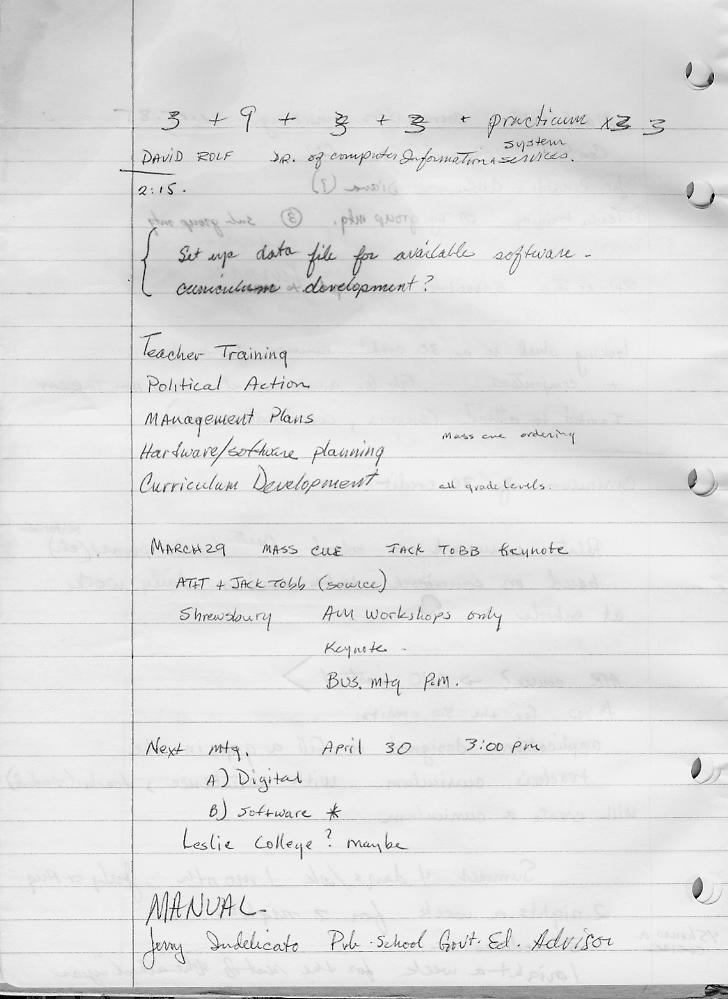 3 + 9 + 3 + 3 + practicum x3 3
system
DAVID ROLF DR. of computer Information & services.
2:15.
Set up data file for available software -
curriculum development?
Teacher Training
Political Action
Management Plans
Hardware/software planning mass cue ordering
Curriculum Development all grade levels.
MARCH 29 MASS CUE JACK TOBB Keynote
AT+T + JACK TOBB (source)
Shrewsbury AM Workshops only
Keynote -
Bus. mtg P.M.
Next mtg. April 30 3:00 pm
A) Digital
B) Software *
Leslie College? maybe
MANUAL-
Jerry Indelicato Pub. School Govt. Ed. Advisor